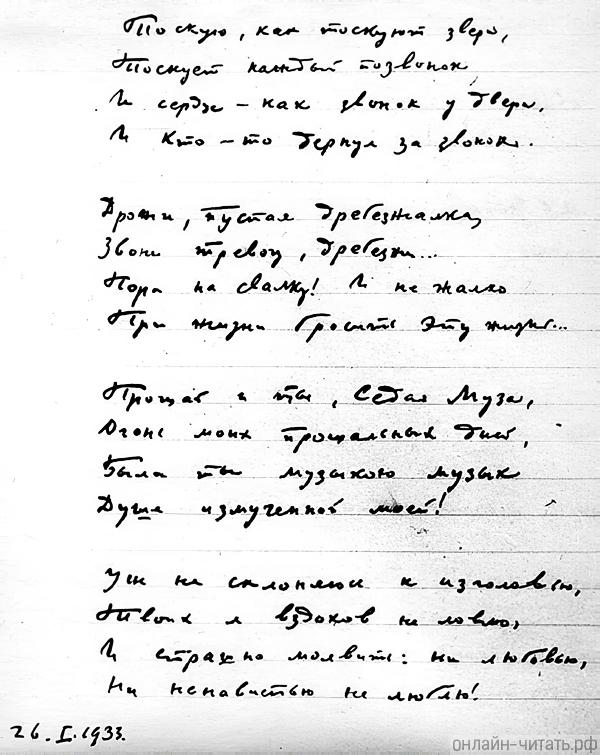 Тоскую, как тоскуют звери,
Тоскует каждый позвонок
И сердце – как звонок у двери,
И кто-то дернул за звонок.
Дрожи, пустая дребезжалка,
Звони тревогу, дребезжи...
Пора на свалку! И не жалко
При жизни бросить эту жизнь...
Прощай и ты, Седая Муза,
Огонь моих прощальных дней,
Была ты музыкою музык
Душе измученной моей!
Уж не склоняюсь к изголовью,
Твоих я вздохов не ловлю,
И страшно молвить: ни любовью,
Ни ненавистью не люблю!
26.I.1933.
онлайн-читать.рф